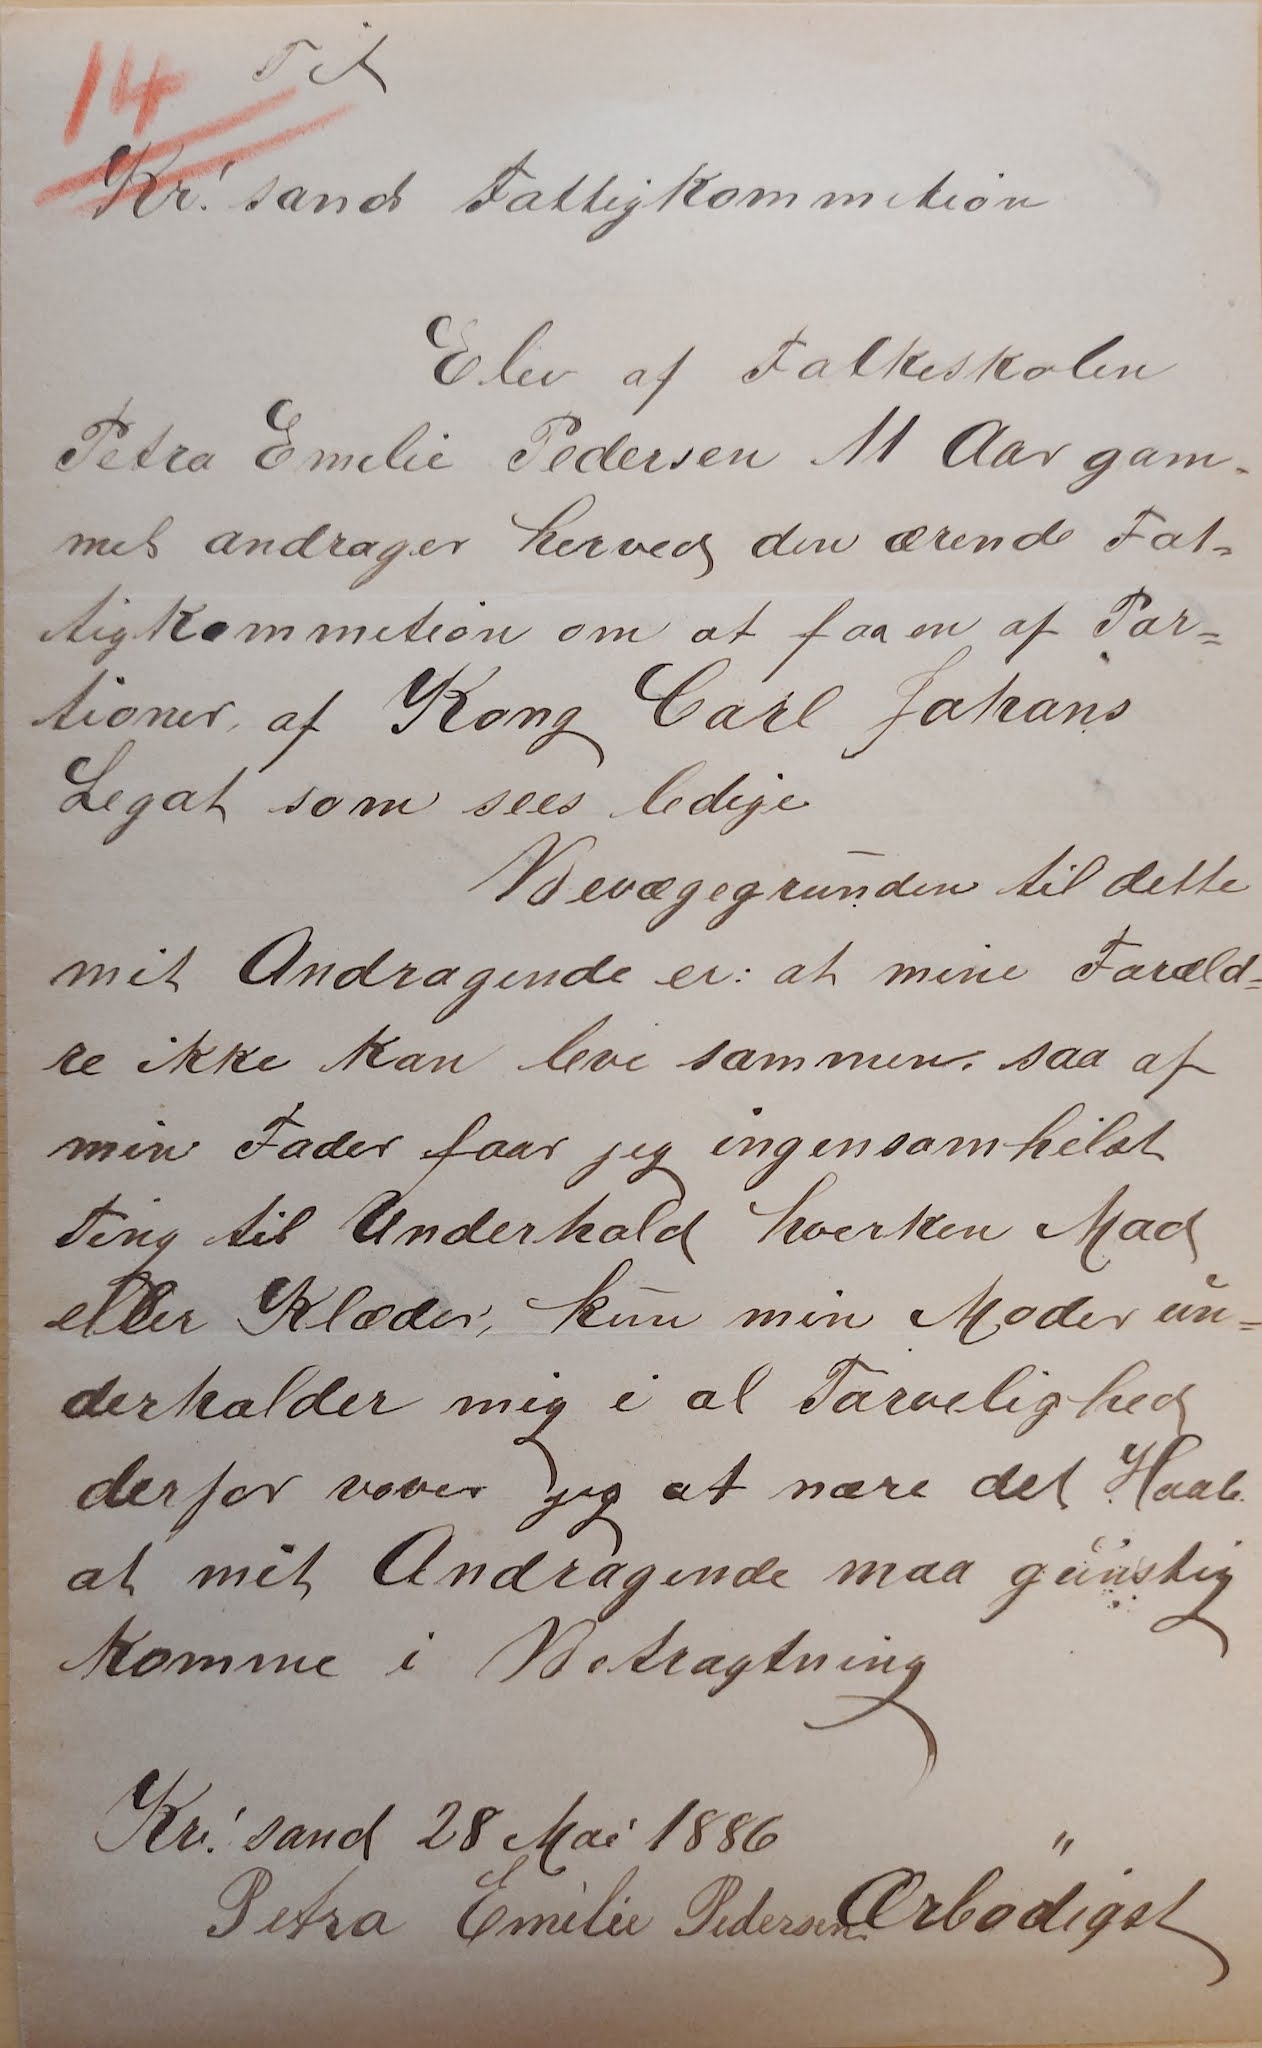 14
Til
Kr.! sand Fattigkommetion
Elev af Folkeskolen
Petra Emelie Pedersen 11 Aar gam-
mel andrager herved den ærende Fat=
tigkommetion om at faa en af Por=
tioner, af Kong Carl Johans
Legat som sees ledige
Bevægegrunden til dette
mit Andragende er: at mine Foræld=
re ikke kan leve sammen. saa af
min Fader faar jeg ingensomhelst
Ting til Underhold hverken Mad
eller Klæder, kun min Moder un=
derholder mig i al Tarvelighed
derfor vover jeg at nære det Haab.
at mit Andragende maa günstig
komme i Betragtning
Kr.! sand 28 Mai 1886
Petra Emilie Pedersen. Ærbödigst